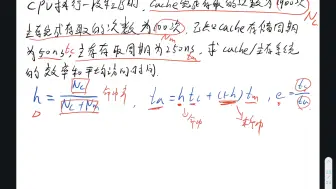 CPU执行一段程序时, cache完成存取的次数为1900次 Nc
主存完成存取的次数为100次, 已知cache存储周期 Nm
为50ns tc 主存存取周期为250ns tm 求cache/主存系统
的效率和平均访问时间
h = Nc / (Nc + Nm) 命中率 , ta = h tc + (1-h) tm , e = tc / ta
命中 未命中